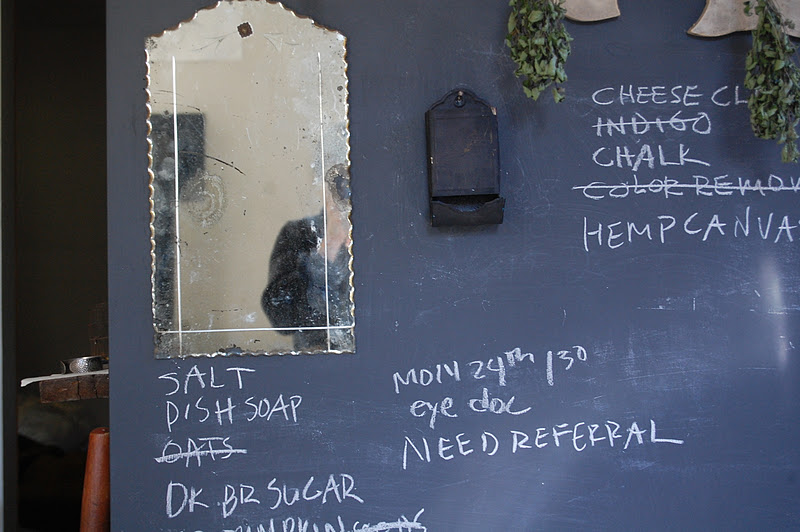 CHEESE CL
INDIGO
CHALK
COLOR REMOV
HEMP CANVA
SALT
DISH SOAP
OATS
DK BR SUGAR
PUMPKIN
MON 24th 130
eye doc
NEED REFERRAL